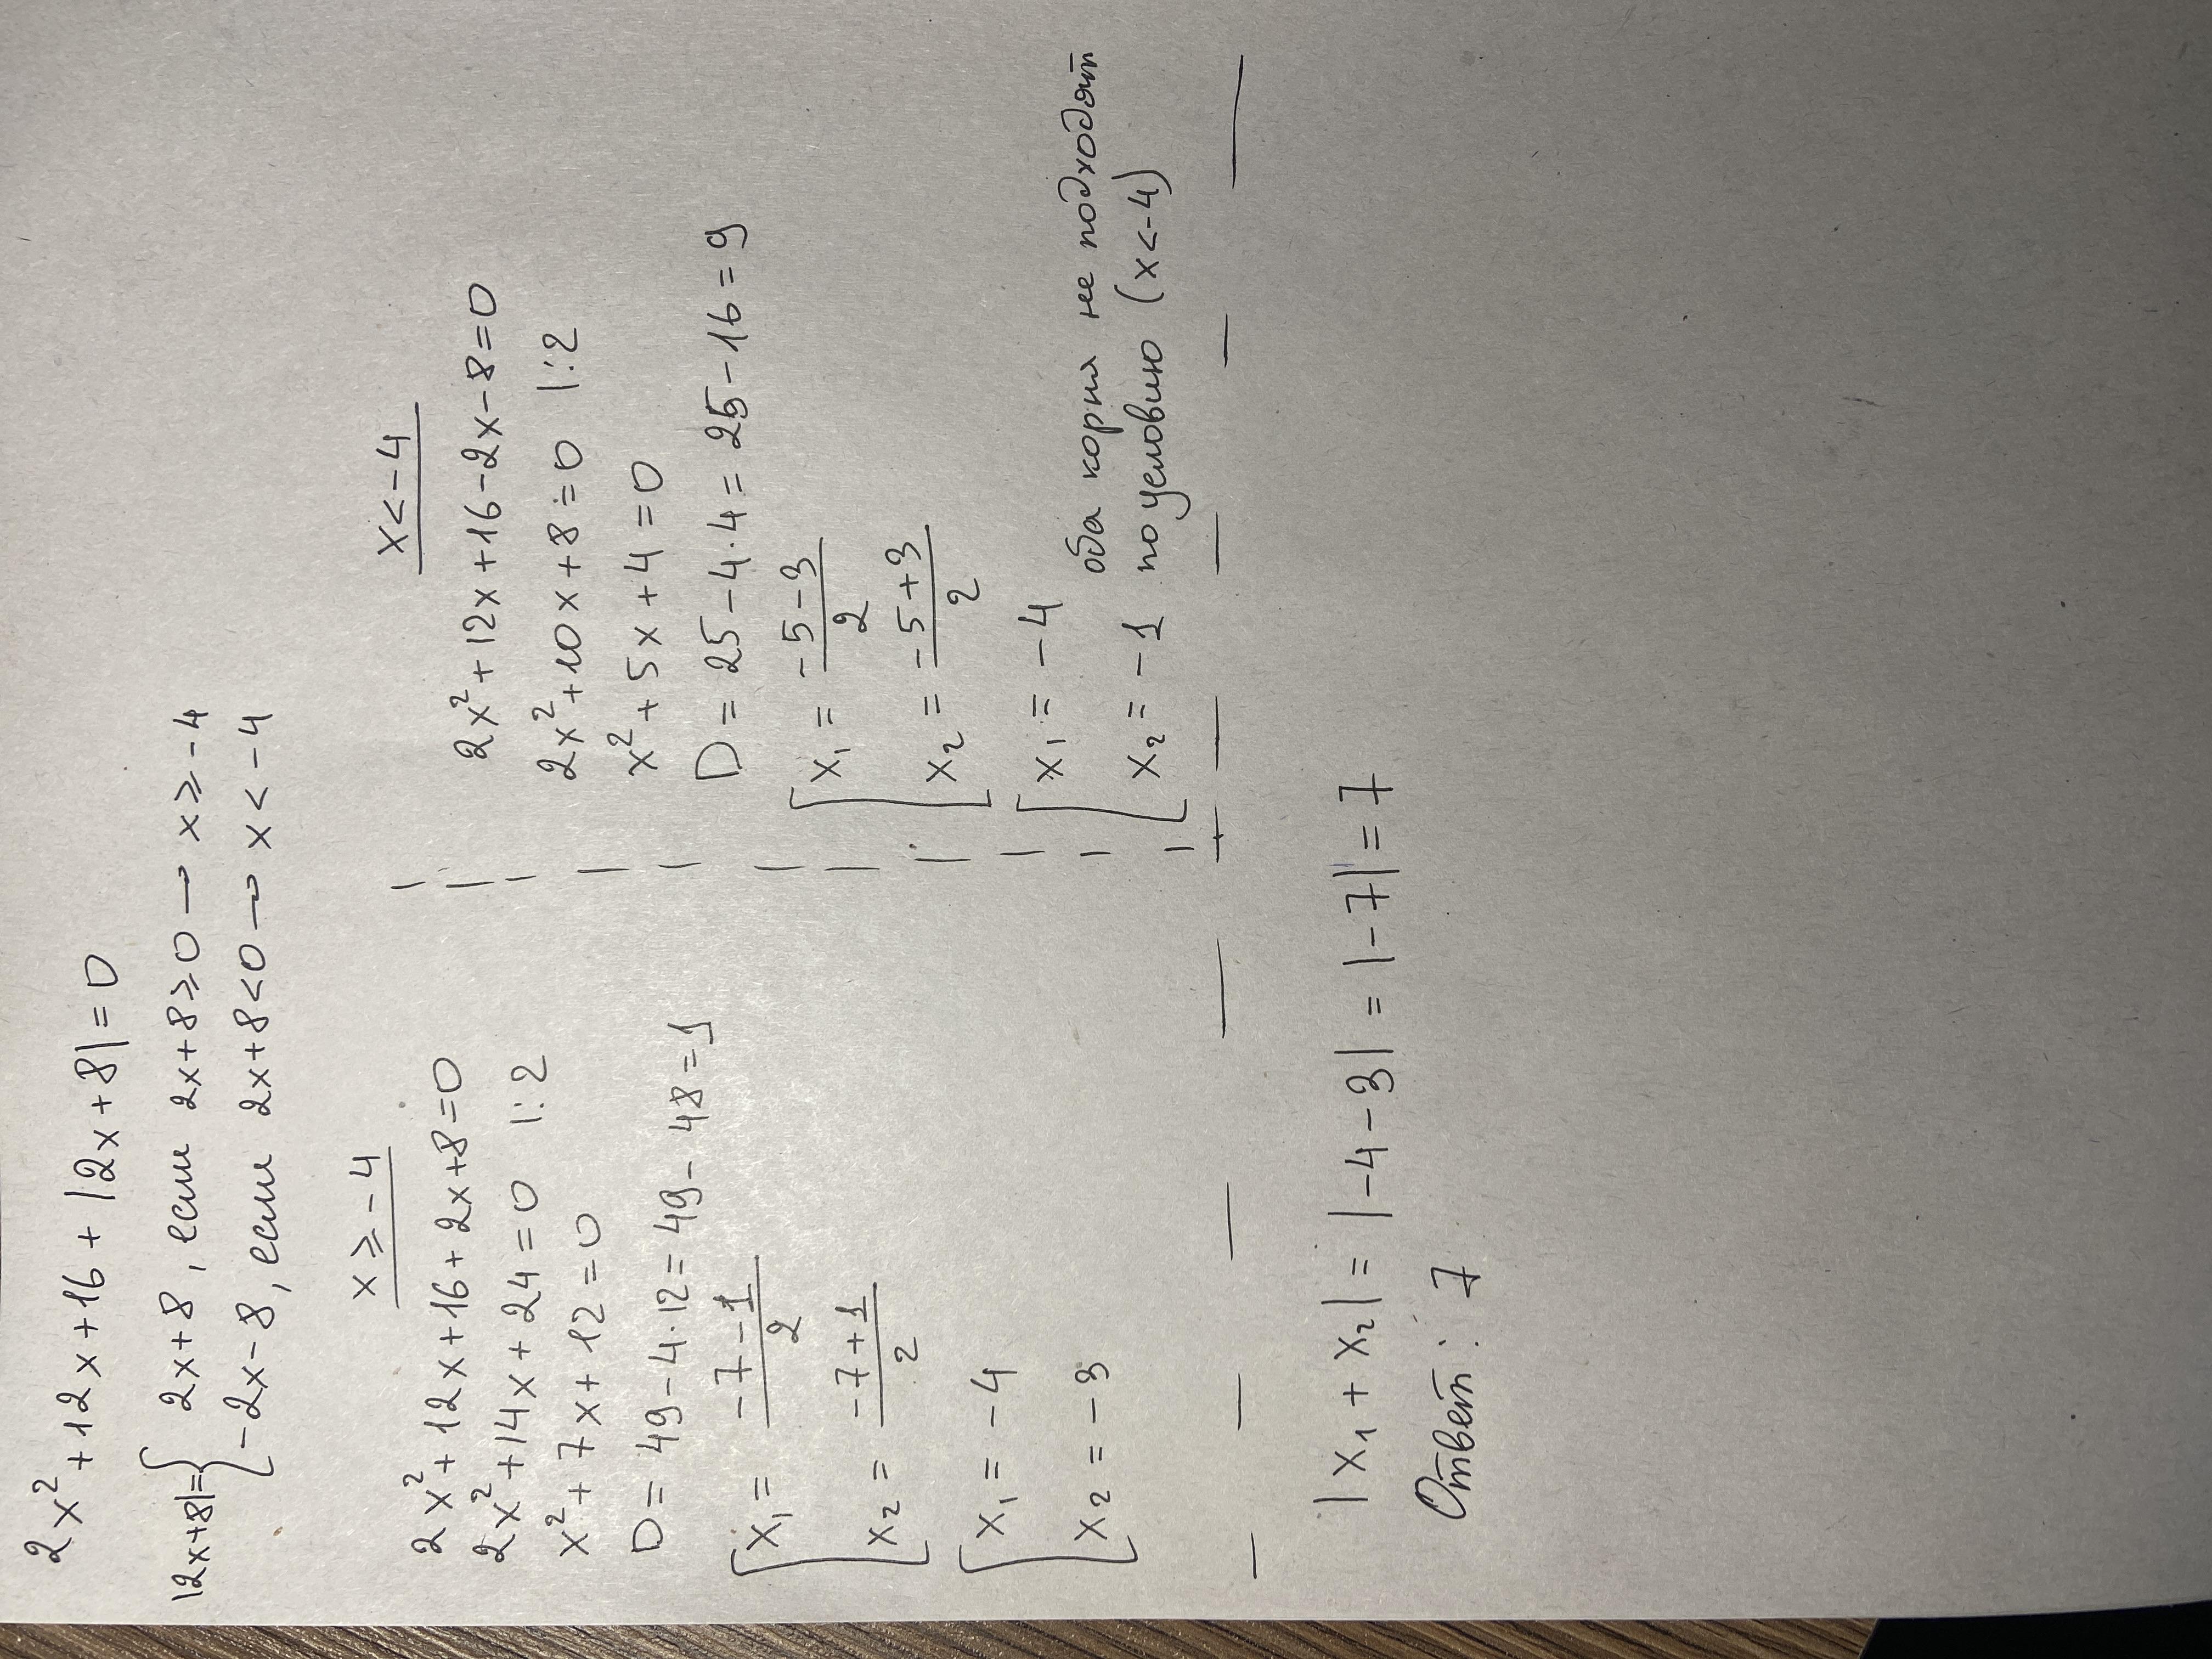 2x² + 12x + 16 + |2x + 8| = 0
|2x+8| = { 2x + 8, если 2x + 8 ≥ 0 → x ≥ -4
-2x - 8, если 2x + 8 < 0 → x < -4
x ≥ -4
2x² + 12x + 16 + 2x + 8 = 0
2x² + 14x + 24 = 0 |:2
x² + 7x + 12 = 0
D = 49 - 4·12 = 49 - 48 = 1
[ x₁ = (-7 - 1)/2
x₂ = (-7 + 1)/2
[ x₁ = -4
x₂ = -3
x < -4
2x² + 12x + 16 - 2x - 8 = 0
2x² + 10x + 8 = 0 |:2
x² + 5x + 4 = 0
D = 25 - 4·4 = 25 - 16 = 9
[ x₁ = (-5 - 3)/2
x₂ = (-5 + 3)/2
[ x₁ = -4
x₂ = -1
оба корня не подходят
по условию (x < -4)
|x₁ + x₂| = |-4 - 3| = |-7| = 7
Ответ: 7